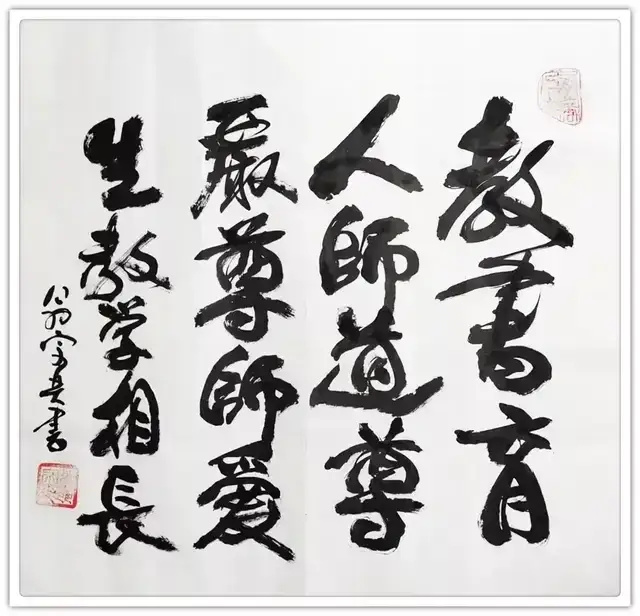 教書育
人師道尊
嚴尊師愛
生教学相長
翁書